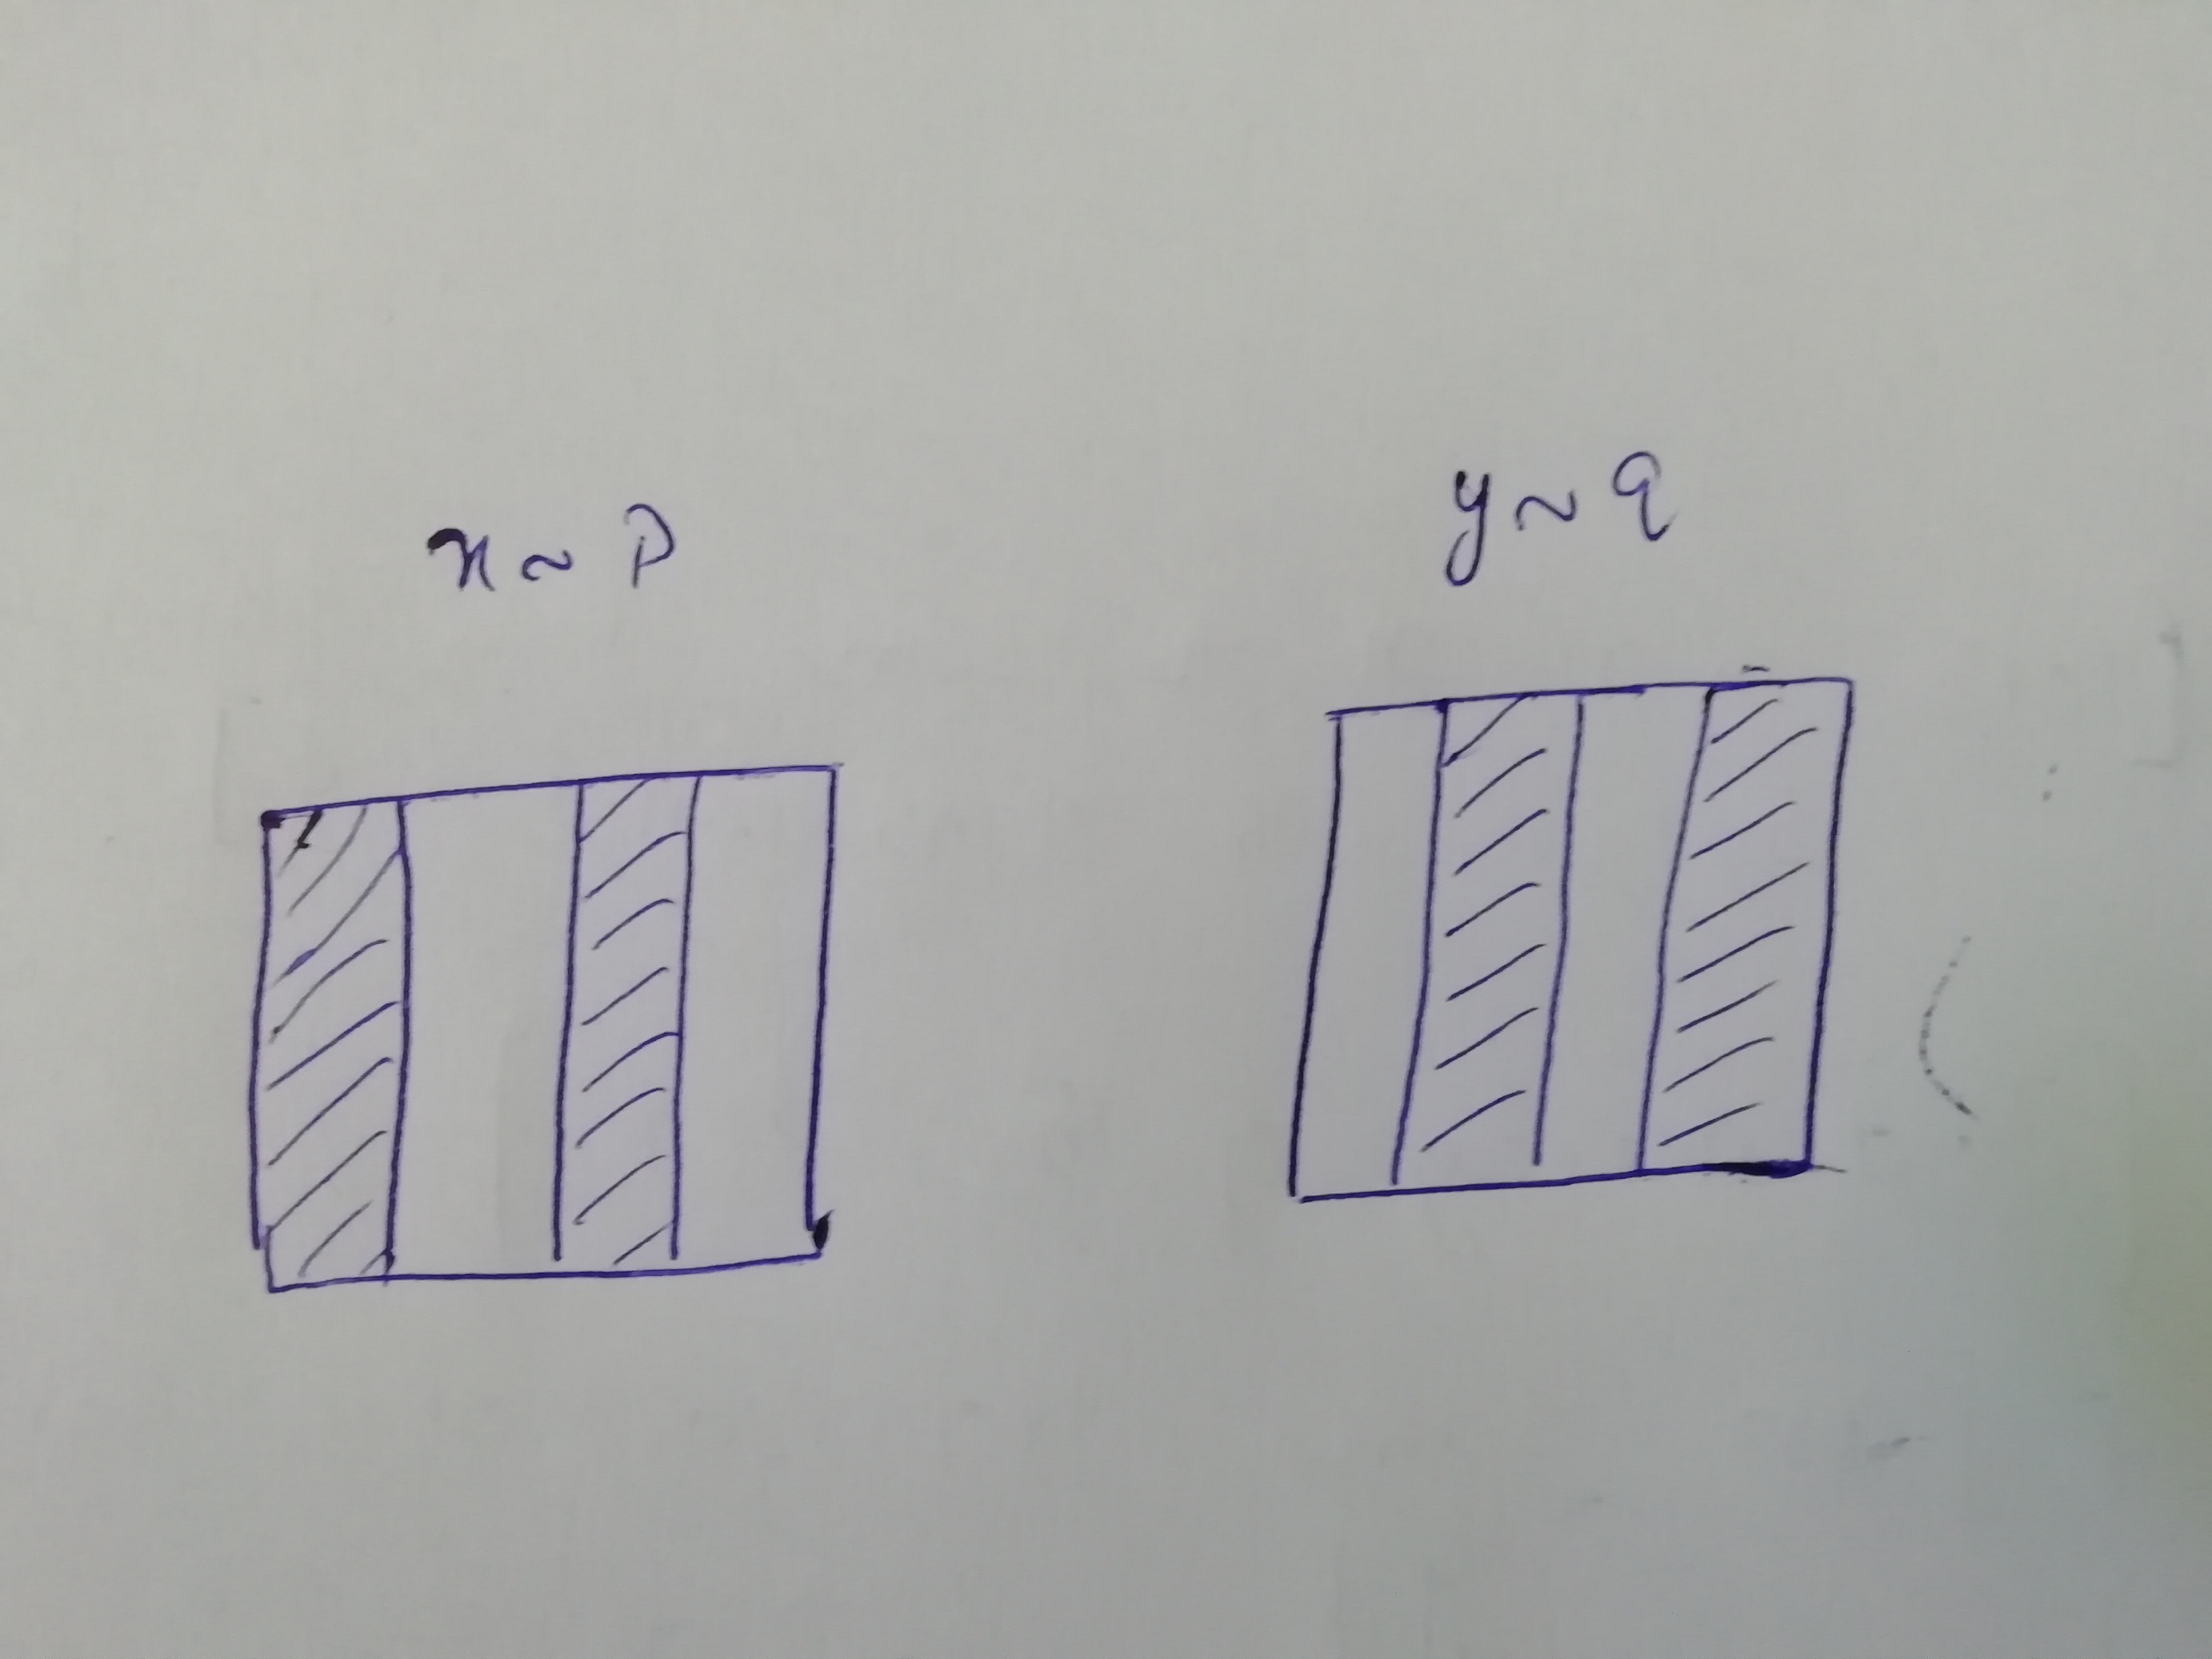 x ~ P
y ~ q